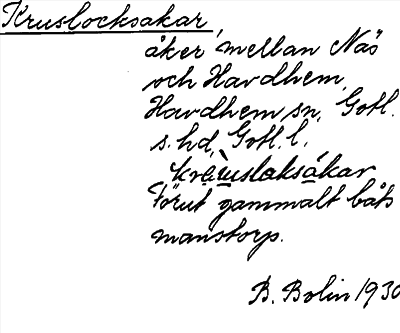 Kruslocksakar,
åker mellan Näs
och Havdhem,
Havdhem sn, Gotl.
s. hd, Gotl. l.
kràu̲slaksákar
Förut gammalt båts
manstorp.
B. Bolin 1930